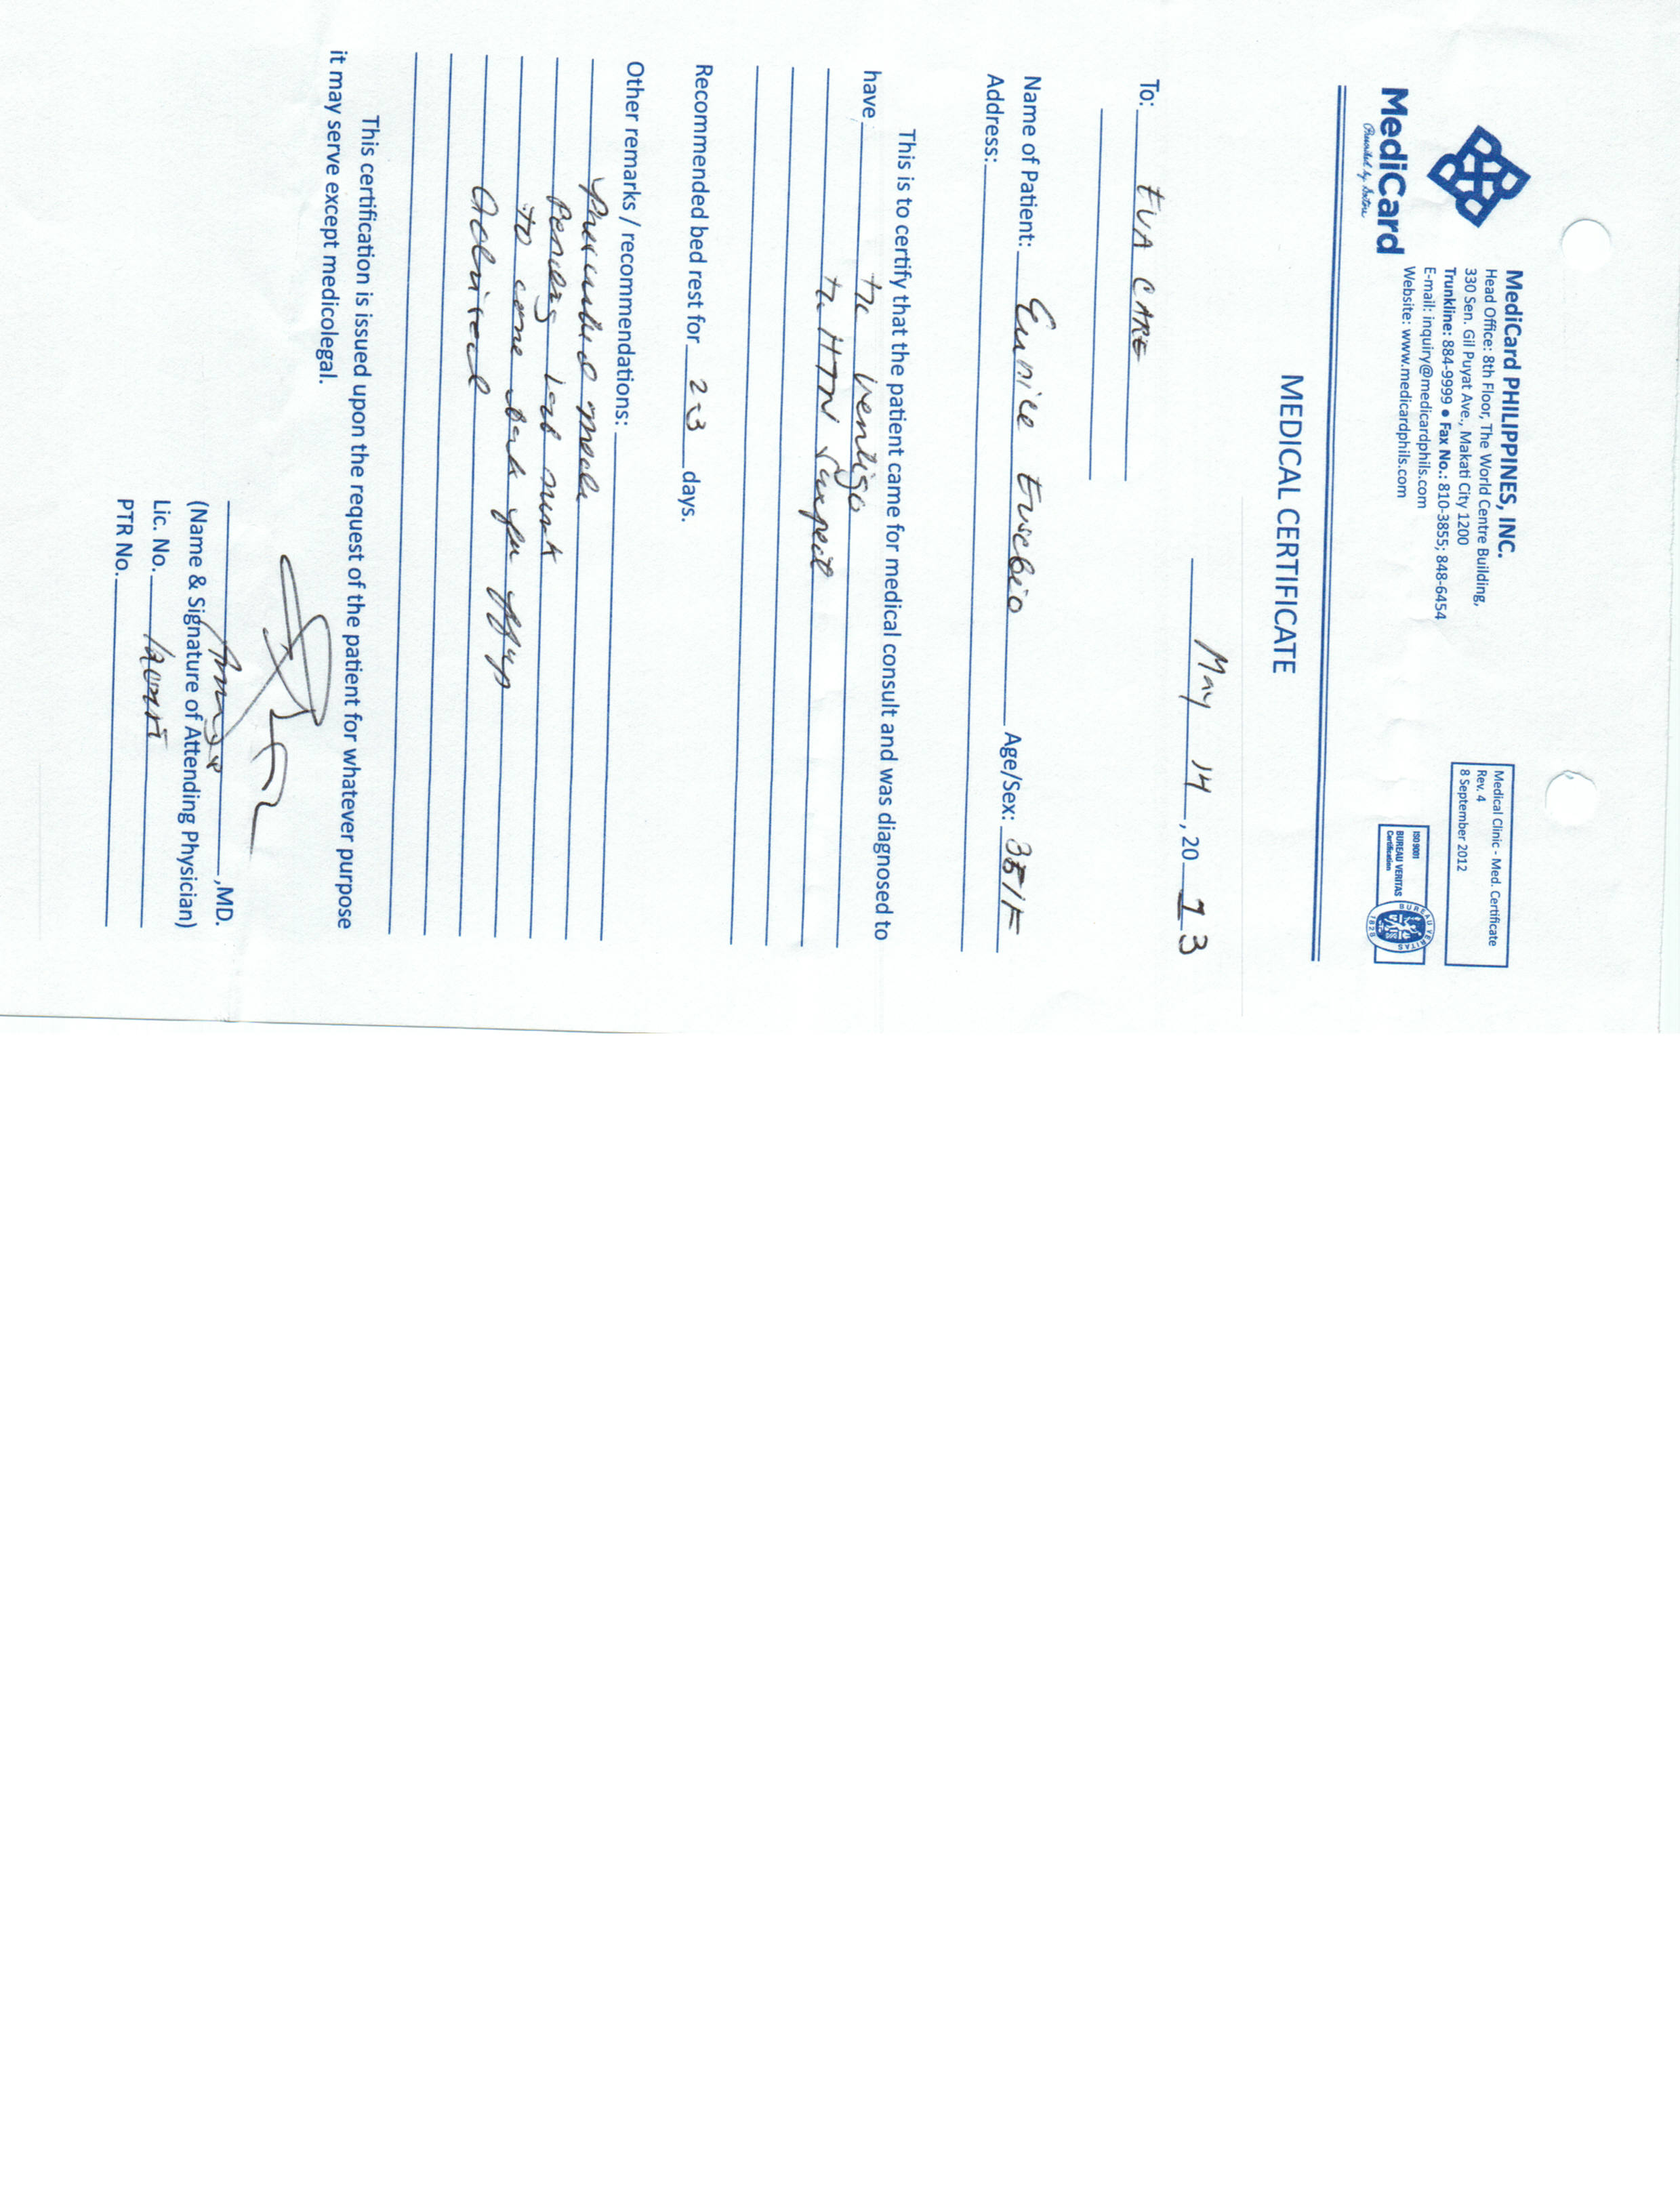 MediCard
MediCard PHILIPPINES, INC.
Head Office: 8th Floor, The World Centre Building,
330 Sen. Gil Puyat Ave., Makati City 1200
Trunkline: 884-9999 ● Fax No.: 810-3855; 848-6454
E-mail: inquiry@medicardphils.com
Website: www.medicardphils.com
Medical Clinic - Med. Certificate
Rev. 4
8 September 2012
ISO 9001
BUREAU VERITAS
Certification
BUREAU VERITAS
1828
MEDICAL CERTIFICATE
May 14, 20 13
To: EVA CARE
Name of Patient: Eunice Eusebio Age/Sex: /F
Address:
This is to certify that the patient came for medical consult and was diagnosed to
have
HTN
Recommended bed rest for 2-3 days.
Other remarks / recommendations:
Pending
to come back
Advised
This certification is issued upon the request of the patient for whatever purpose
it may serve except medicolegal.
, MD.
(Name & Signature of Attending Physician)
Lic. No.
PTR No.